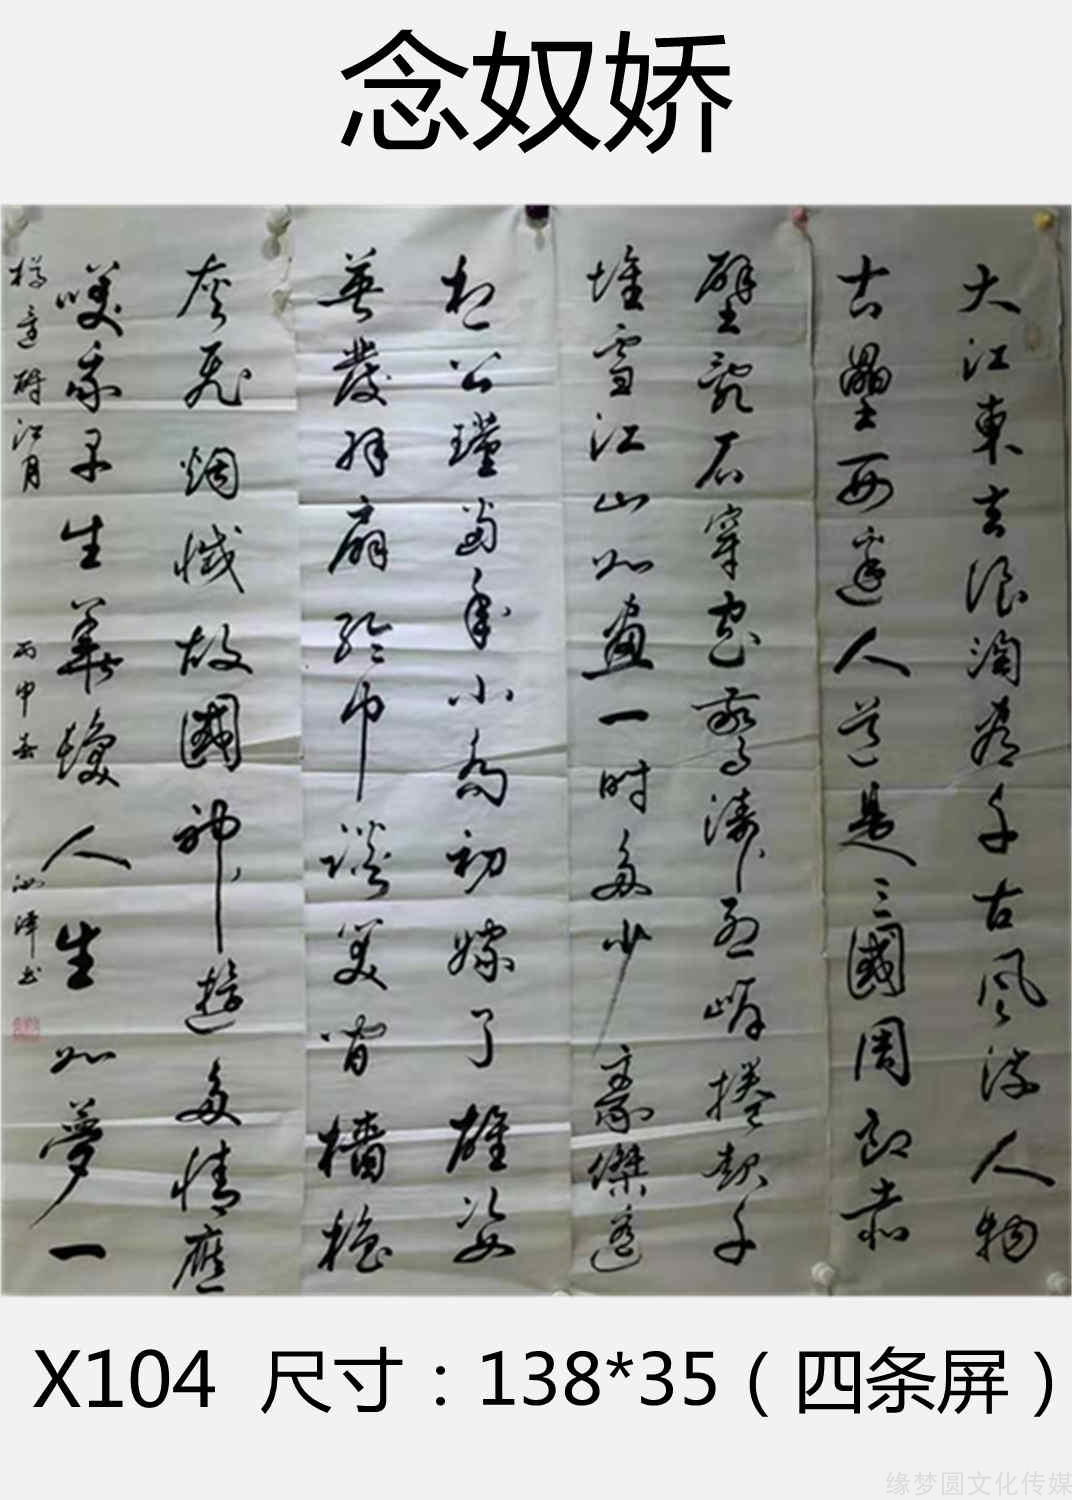 念奴娇
大江東去浪淘盡千古風流人物
故壘西邊人道是三國周郎赤
壁亂石穿空驚濤裂岸捲起千
堆雪江山如畫一時多少豪傑遥
想公瑾當年小喬初嫁了雄姿
英發羽扇綸巾談笑間檣櫓
灰飛烟滅故國神遊多情應
笑我早生華髮人生如夢一
樽還酹江月
丙申春
書
X104 尺寸：138*35（四条屏）
缘梦圆文化传媒